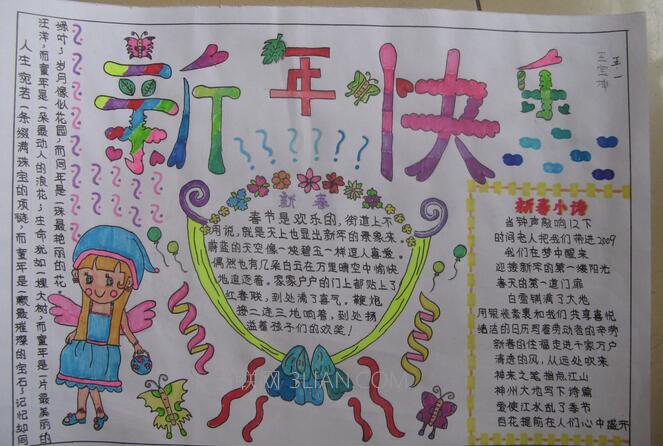 新年快乐
五一
新春
春节是欢乐的,街道上不
用说,就是天上也显出新年的景象来。
蔚蓝的天空像一块碧玉一样逗人喜爱。
偶然也有几朵白云在万里晴空中愉快
地追逐着。家家户户的门上都贴上了
红春联,到处满了喜气,鞭炮
接二连三地响着,到处扬
溢着孩子们的欢笑!
新春小诗
当钟声敲响12下
时间老人把我们带进2009
我们在梦中醒来
迎接新年的第一缕阳光
春天的第一道门扉
白雪铺满了大地
用银装素裹和我们共享喜悦
皓洁的日历写着劳动者的辛劳
新春的祝福走进千家万户
清逸的风,从远处吹来
神来之笔指点江山
神州大地写下诗篇
爱使江水乱了季节
百花提前在人们心中盛开
人生宛若一条缀满珠宝的项链,而童年是一颗最璀璨的宝石;记忆如同
汪洋,而童年是一朵最动人的浪花;生命犹如一棵大树,而童年是一片最美丽的
绿叶;岁月像似花园,而童年是一株最艳丽的花。
3LIAN.COM